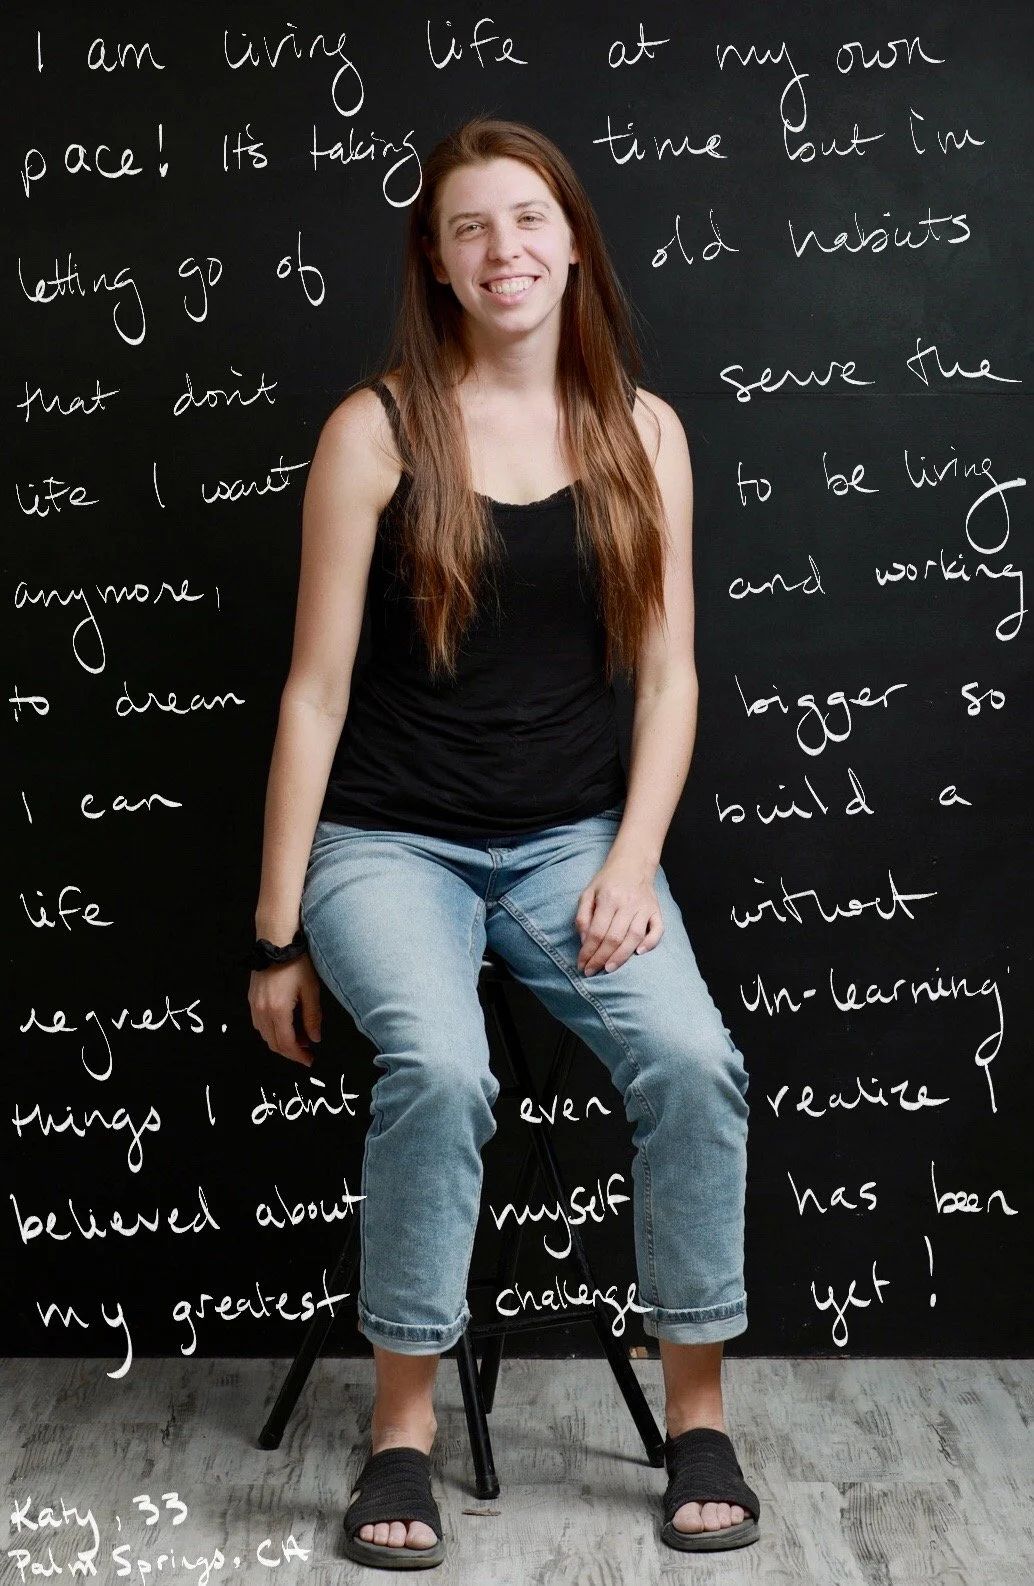 I am living life at my own
pace! It's taking time but i'm
letting go of old habits
that don't serve the
life I want to be living
anymore, and working
to dream bigger so
I can build a
life without
regrets. Un-learning
things I didn't even realize I
believed about myself has been
my greatest challenge yet!
Katy, 33
Palm Springs, CA